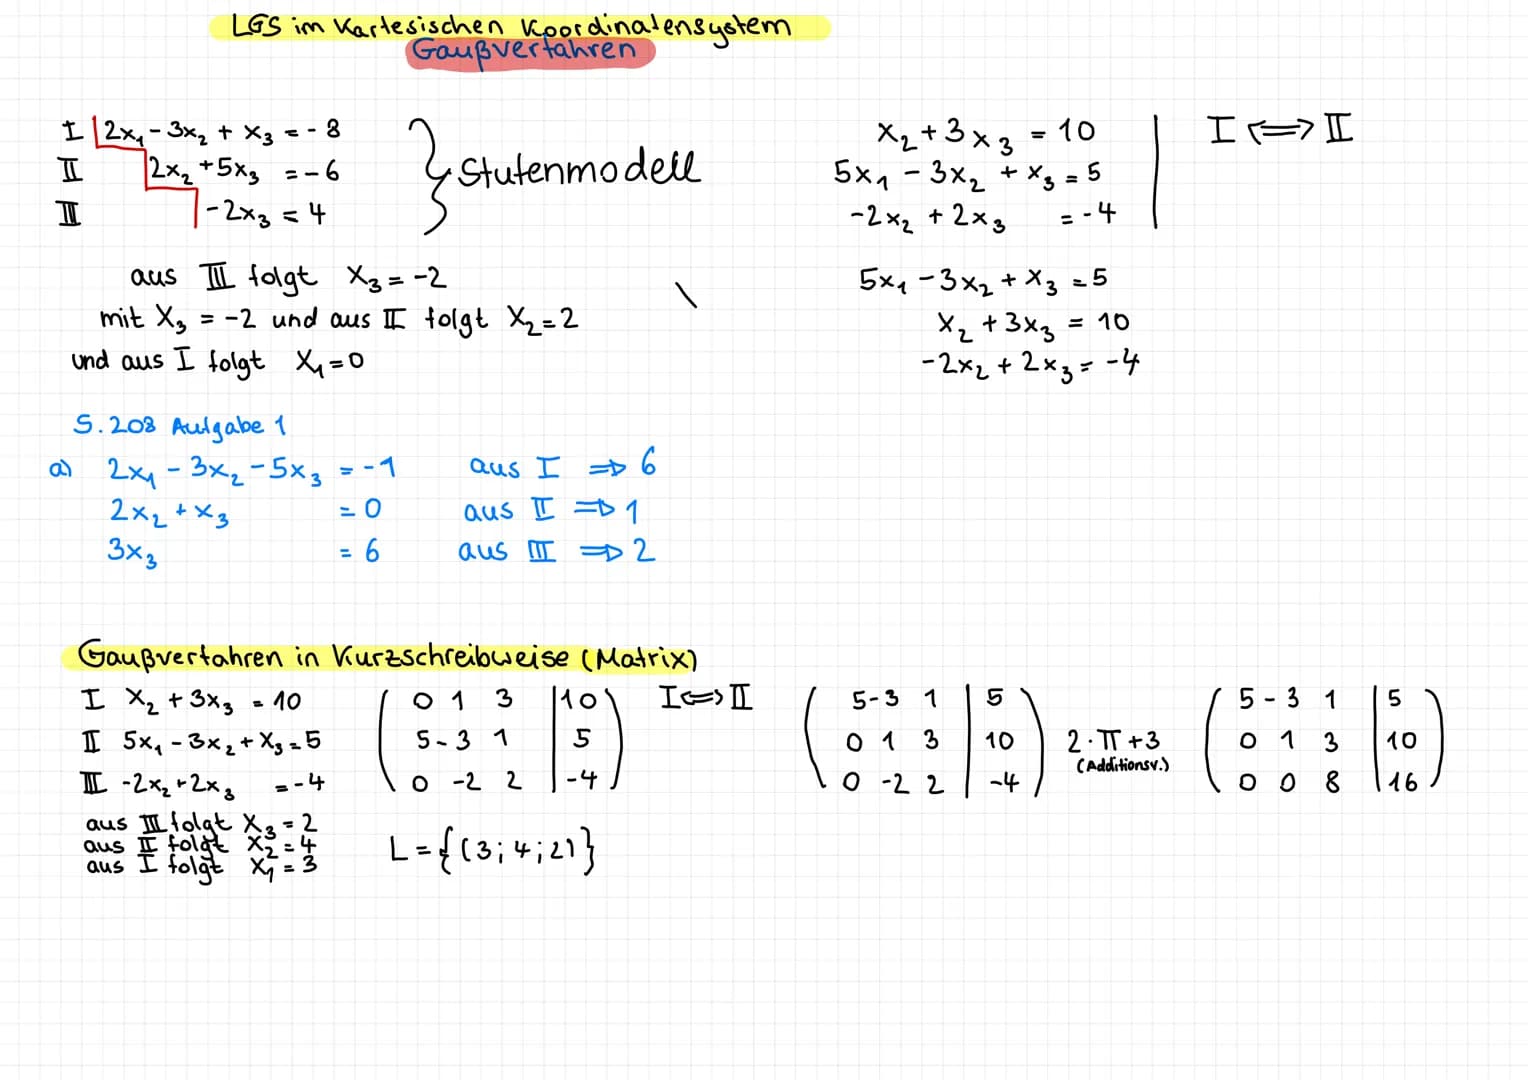 LGS im Kartesischen Koordinatensystem
Gaußverfahren
I 2x₁ - 3x₂ + x₃ = -8
II 2x₂ + 5x₃ = -6
III -2x₃ = 4
Stufenmodell
aus III folgt x₃ = -2
mit x₃ = -2 und aus II folgt x₂ = 2
und aus I folgt x₁ = 0
x₂ + 3x₃ = 10 | I ⟺ II
5x₁ - 3x₂ + x₃ = 5
-2x₂ + 2x₃ = -4
5x₁ - 3x₂ + x₃ = 5
x₂ + 3x₃ = 10
-2x₂ + 2x₃ = -4
S. 208 Aufgabe 1
a) 2x₁ - 3x₂ - 5x₃ = -1 aus I ⇒ 6
2x₂ + x₃ = 0 aus II ⇒ 1
3x₃ = 6 aus III ⇒ 2
Gaußverfahren in Kurzschreibweise (Matrix)
I x₂ + 3x₃ = 10
II 5x₁ - 3x₂ + x₃ = 5
III -2x₂ + 2x₃ = -4
0 1 3 | 10
5 -3 1 | 5
0 -2 2 | -4
I ⟺ II
5 -3 1 | 5
0 1 3 | 10
0 -2 2 | -4
2·II + 3
(Additionsv.)
5 -3 1 | 5
0 1 3 | 10
0 0 8 | 16
aus III folgt x₃ = 2
aus II folgt x₂ = 4
aus I folgt x₁ = 3
L = {(3; 4; 2)}